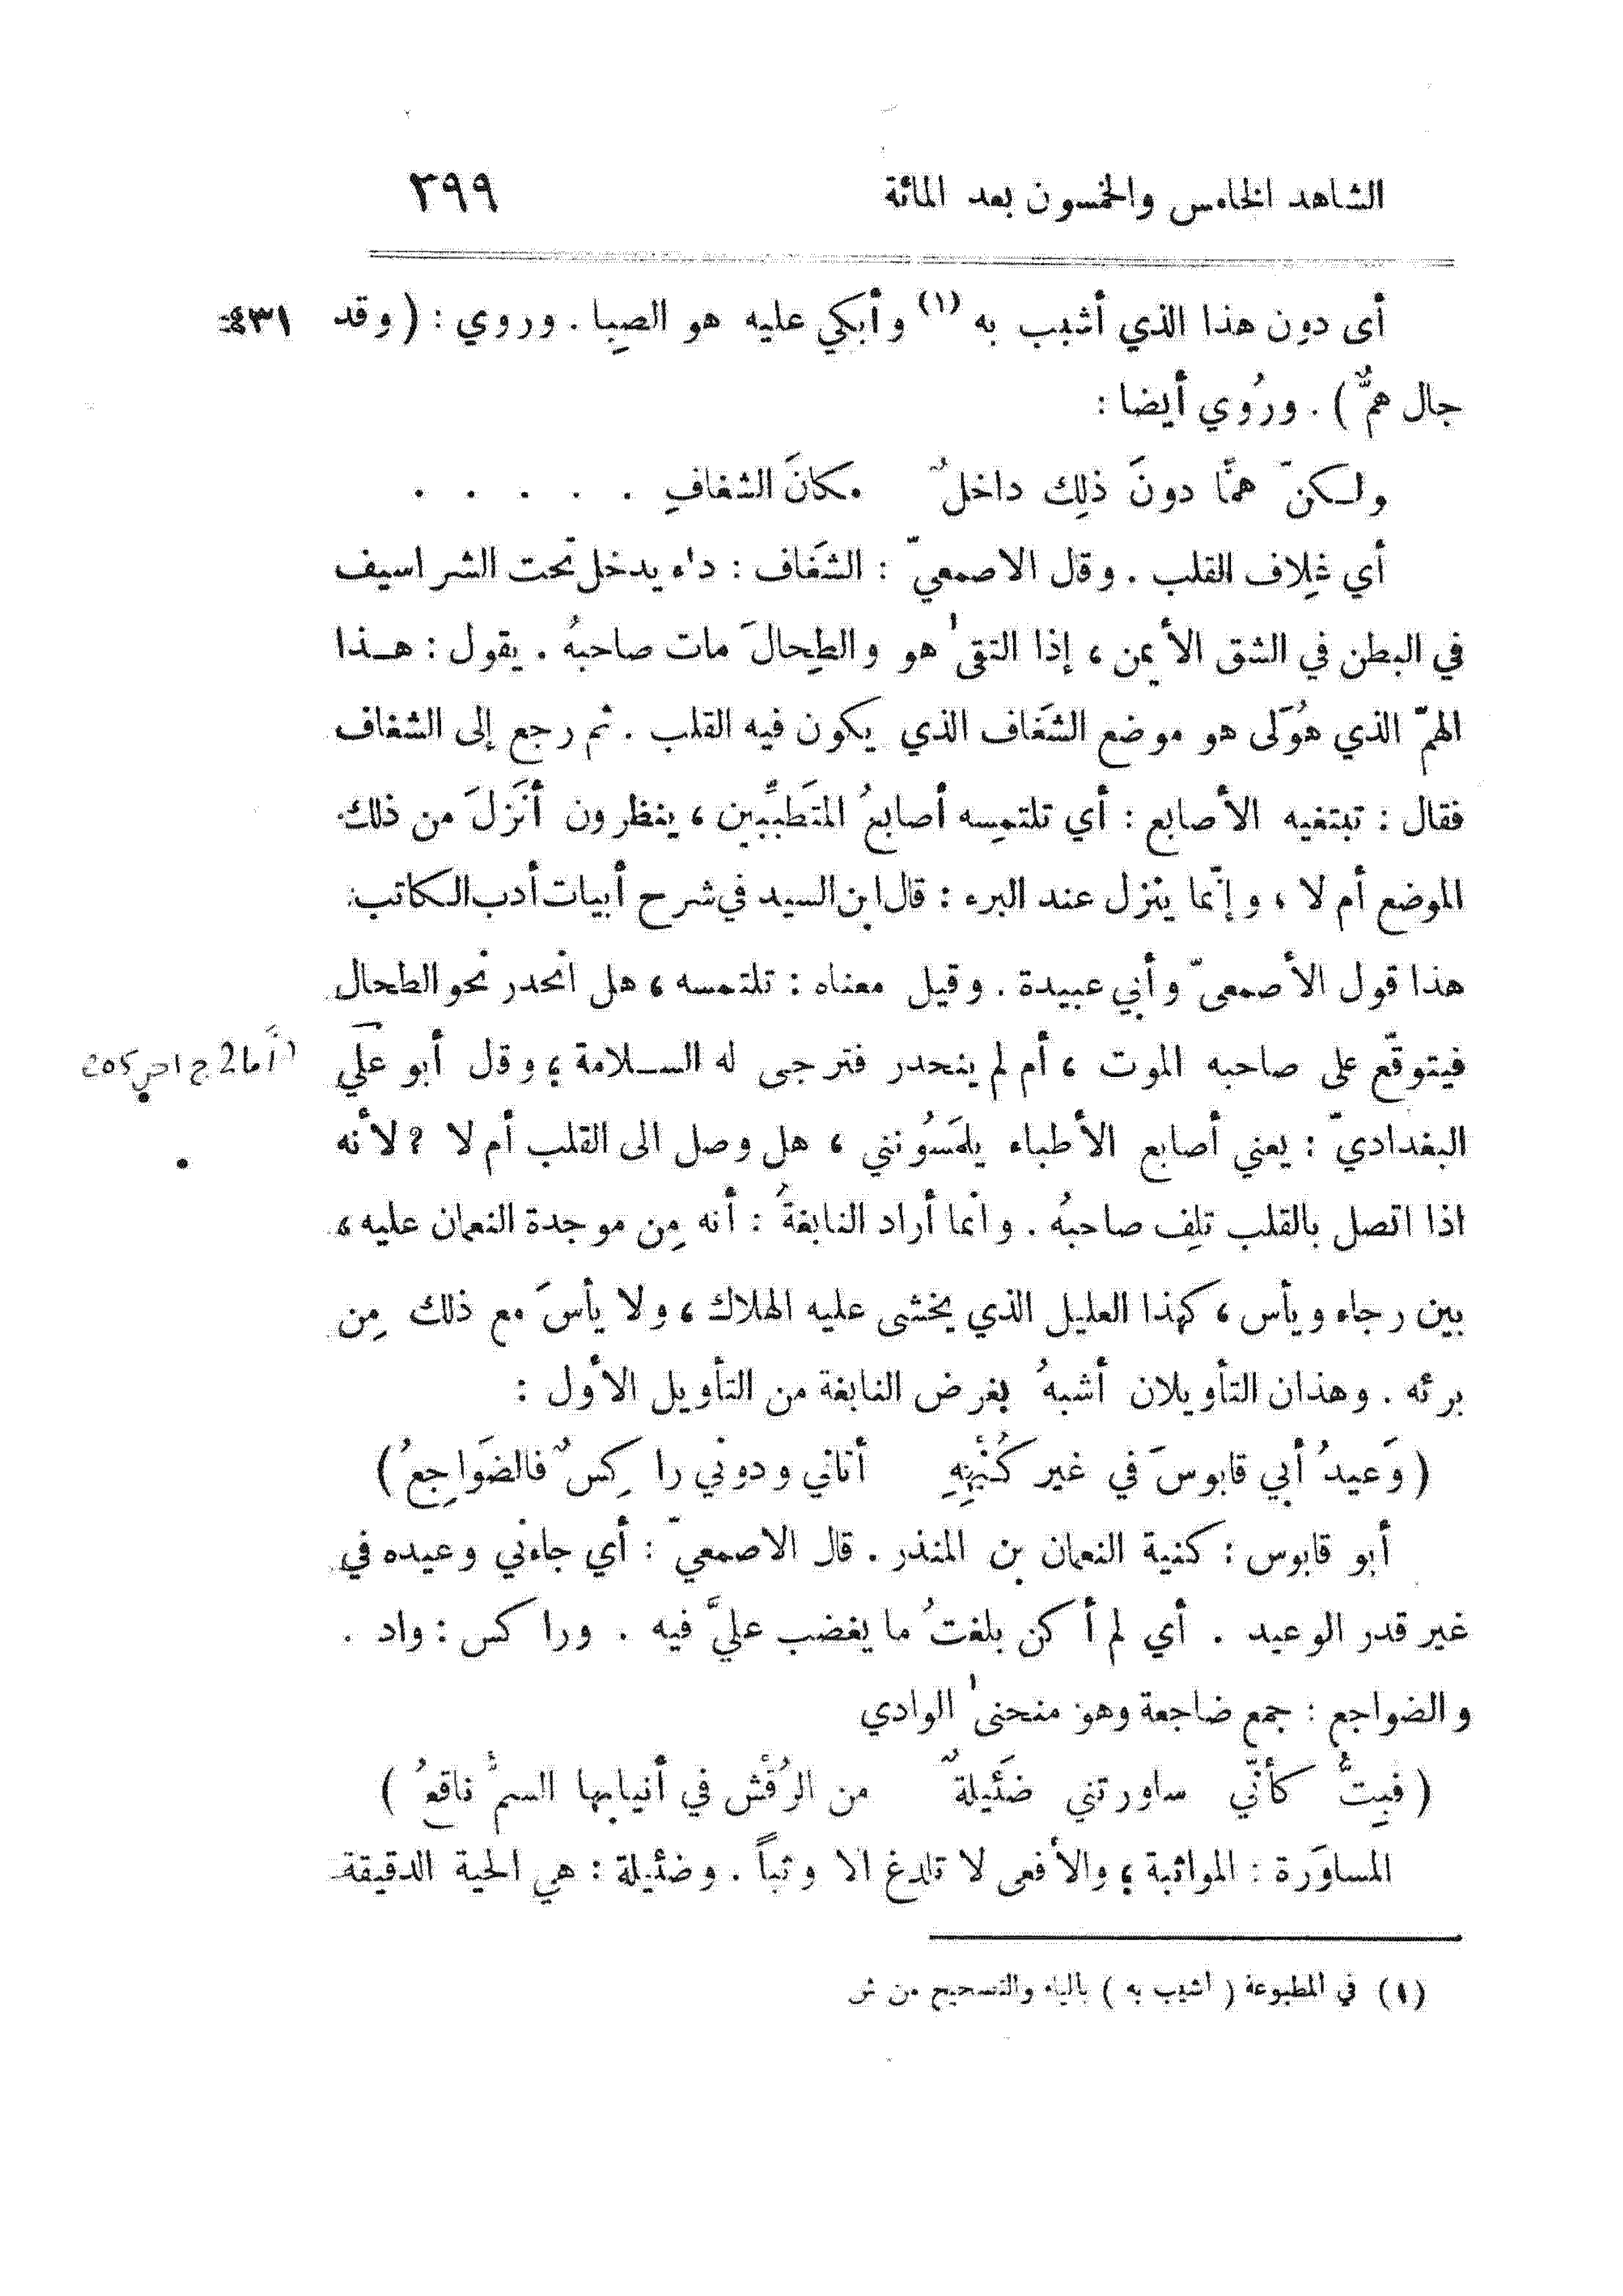 الشاهد الخامس والخمسون بعد المائة ٣٩٩
أى دون هذا الذي أشبب به (١) وأبكي عليه هو الصِبا . وروي : ( وقد ٤٣١
جال همٌّ ) . ورُوي أيضا :
ولـكنّ همًّا دونَ ذلِك داخلٌ مكانَ الشغافِ . . . . .
أي غِلاف القلب . وقل الاصمعيّ : الشَغاف : داء يدخل تحت الشراسيف
في البطن في الشق الأيمن ، إذا التقى هو والطِحالَ مات صاحبهُ . يقول : هـذا
الهمّ الذي هُوَلى هو موضع الشَغاف الذي يكون فيه القلب . ثم رجع إلى الشغاف
فقال : تبتغيه الأصابع : أي تلتمِسه أصابعُ المتَطبِّبين ، ينظرون أنَزلَ من ذلك
الموضع أم لا ، وإنّما ينزل عند البرء : قال ابن السيد في شرح أبيات أدب الـكاتب :
هذا قول الأصمعىّ وأبي عبيدة . وقيل معناه : تلتمسه ، هل انحدر نحو الطحال
فيتوقّع على صاحبه الموت ، أم لم ينحدر فترجى له السـلامة ؛ وقل أبو علَي
البغداديّ : يعني أصابع الأطباء يلمَسُونني ، هل وصل الى القلب أم لا ؟ لأنه
اذا اتصل بالقلب تلِف صاحبهُ . وانما أراد النابغةُ : أنه مِن موجدة النعمان عليه ،
بين رجاء ويأس ، كهذا العليل الذي يخشى عليه الهلاك ، ولا يأسَ مع ذلك مِن
برئه . وهذان التأويلان أشبهُ بغرض النابغة من التأويل الأول :
( وَعيدُ أبي قابوسَ في غير كُنْهِهِ أتاني ودوني را كِسٌ فالضَواجِعُ )
أبو قابوس : كنية النعمان بن المنذر . قال الاصمعيّ : أي جاءني وعيده في
غير قدر الوعيد . أي لم أكن بلغتُ ما يغضب عليَّ فيه . وراكس : واد .
والضواجع : جمع ضاجعة وهو منحنى الوادي
( فبِتُّ كأنّي ساورتني ضَئيلةٌ من الرُقْش في أنيابها السمُّ ناقعُ )
المساوَرة : المواثبة ؛ والأفعى لا تلدغ الا وثباً . وضئيلة : هي الحية الدقيقة
(١) في المطبوعة ( اشيب به ) بالياء والتصحيح من ش